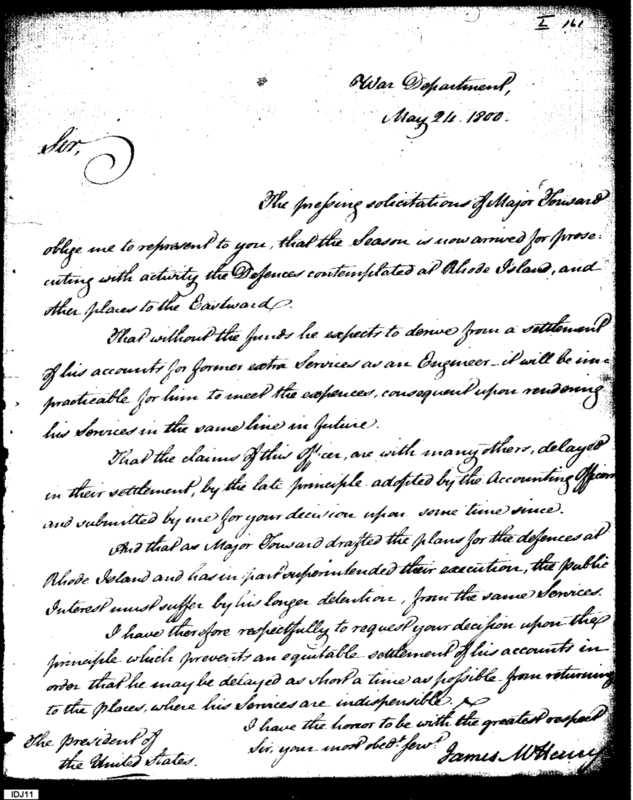 I 161
War Department,
May 24. 1800.
Sir,
The pressing solicitations of Major Tousard
oblige me to represent to you, that the Season is now arrived for prose-
cuting with activity the Defences contemplated at Rhode Island, and
other places to the Eastward.
That without the funds he expects to derive from a settlement
of his accounts for former extra Services as an Engineer - it will be im-
practicable for him to meet the expences, consequent upon rendering
his Services in the same line in future.
That the claims of this Officer, are with many others, delayed
in their settlement, by the late principle adopted by the Accounting Officers
and submitted by me for your decision upon some time since.
And that as Major Tousard drafted the plans for the defences at
Rhode Island and has in part superintended their execution, the public
Interest must suffer by his longer detention, from the same Services.
I have therefore respectfully to request your decision upon the
principle which prevents an equitable settlement of his accounts in
order that he may be delayed as short a time as possible from returning
to the places, where his Services are indispensible.
I have the honor to be with the greatest respect
Sir, your most obedt. servt.
James McHenry
The president of
the United States.
IDJ11